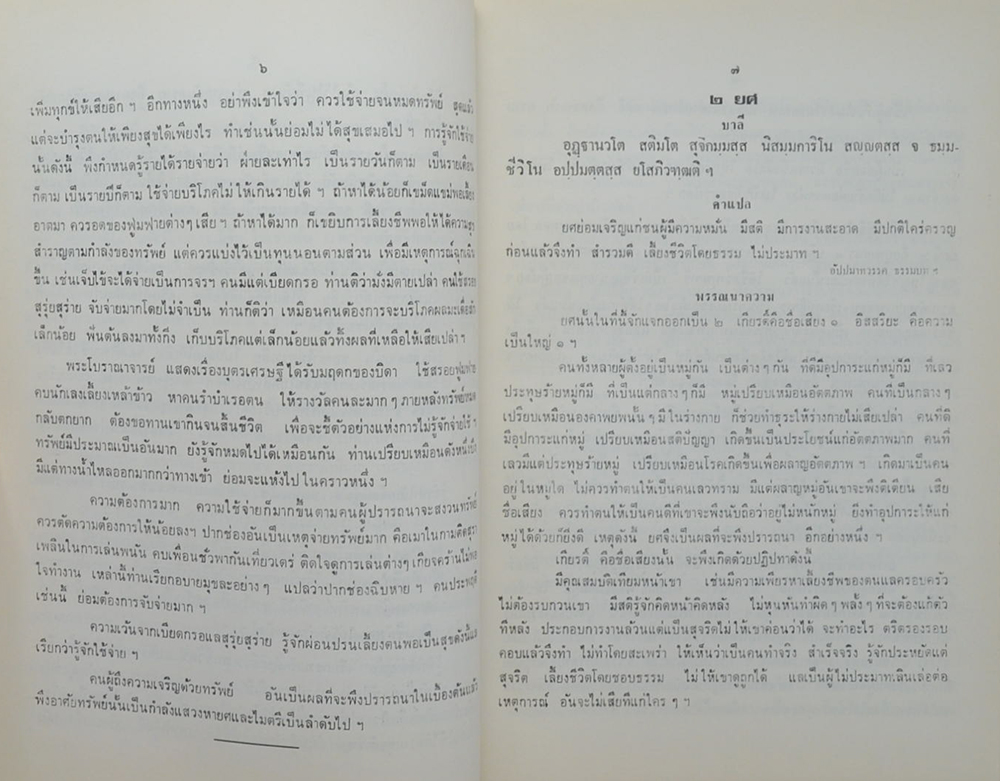 ๖
เพิ่มทุกข์ให้เสียอีก ฯ อีกทางหนึ่ง อย่าพึงเข้าใจว่า ควรใช้จ่ายจนหมดทรัพย์ สุดแล้ว
แต่จะบำรุงตนให้เพียงสุขได้เพียงไร ทำเช่นนั้นย่อมไม่ได้สุขเสมอไป ฯ การรู้จักใช้จ่าย
นั้นดังนี้ พึงกำหนดรู้รายได้รายจ่ายว่า ฝ่ายละเท่าไร เป็นรายวันก็ตาม เป็นรายเดือน
ก็ตาม เป็นรายปีก็ตาม ใช้จ่ายบริโภคไม่ให้เกินรายได้ ฯ ถ้าหาได้น้อยก็เขม็ดแขม่พอเลี้ยง
อาตมา ควรอดของฟูมฟายต่างๆ เสีย ฯ ถ้าหาได้มาก ก็เขยิบการเลี้ยงชีพพอให้ได้ความสุข
สำราญตามกำลังของทรัพย์ แต่ควรแบ่งไว้เป็นทุนนอนตามส่วน เพื่อมีเหตุการณ์ฉุกเฉิน
ขึ้น เช่นเจ็บไข้จะได้จ่ายเป็นการจร ฯ คนมีแต่เบียดกรอ ท่านติว่ามั่งมีตายเปล่า คนใช้สรอย
สุรุ่ยสุร่าย จับจ่ายมากโดยไม่จำเป็น ท่านก็ติว่า เหมือนคนต้องการจะบริโภคผลมะเดื่อแต่
เล็กน้อย ฟันต้นลงมาทั้งกิ่ง เก็บบริโภคแต่เล็กน้อยแล้วทิ้งผลที่เหลือให้เสียเปล่า ฯ
พระโบราณาจารย์ แสดงเรื่องบุตรเศรษฐีได้รับมฤดกของบิดา ใช้สรอยฟูมฟาย
คบนักเลงเลี้ยงเหล้าข้าว หาคนรำบำเรอตน ให้รางวัลคนละมาก ๆ ภายหลังทรัพย์หมด
กลับตกยาก ต้องขอทานเขากินจนสิ้นชีวิต เพื่อจะชี้ตัวอย่างแห่งการไม่รู้จักจ่ายไว้ ฯ
ทรัพย์มีประมาณเป็นอันมาก ยังรู้จักหมดไปได้เหมือนกัน ท่านเปรียบเหมือนดังหนึ่งบึง
มีแต่ทางน้ำไหลออกมากกว่าทางเข้า ย่อมจะแห้งไปในคราวหนึ่ง ฯ
ความต้องการมาก ความใช้จ่ายก็มากขึ้นตามคนผู้ปรารถนาจะสงวนทรัพย์
ควรตัดความต้องการให้น้อยลง ฯ ปากช่องอันเป็นเหตุจ่ายทรัพย์มาก คือเมาในกามติดสุรา
เพลินในการเล่นพนัน คบเพื่อนชั่วพากันเที่ยวเตร่ ติดใจดูการเล่นต่างๆ เกียจคร้านไม่พอ
ใจทำงาน เหล่านี้ท่านเรียกอบายมุขละอย่าง ๆ แปลว่าปากช่องฉิบหาย ฯ คนประพฤติ
เช่นนี้ ย่อมต้องการจับจ่ายมาก ฯ
ความเว้นจากเบียดกรอแลสุรุ่ยสุร่าย รู้จักผ่อนปรนเลี้ยงตนพอเป็นสุขดังนี้แล
เรียกว่ารู้จักใช้จ่าย ฯ
คนผู้ถึงความเจริญด้วยทรัพย์ อันเป็นผลที่จะพึงปรารถนาในเบื้องต้นแล้ว
พึงอาศัยทรัพย์นั้นเป็นกำลังแสวงหายศและไมตรีเป็นลำดับไป ฯ
๗
๒ ยศ
บาลี
อุฏฺฐานวโต สติมโต สุจิกมฺมสฺส นิสมฺมการิโน สญฺญตสฺส จ ธมฺม-
ชีวิโน อปฺปมตฺตสฺส ยโสภิวฑฺฒติ ฯ
คำแปล
ยศย่อมเจริญแก่ชนผู้มีความหมั่น มีสติ มีการงานสะอาด มีปกติใคร่ครวญ
ก่อนแล้วจึงทำ สำรวมดี เลี้ยงชีวิตโดยธรรม ไม่ประมาท ฯ
อัปปมาทวรรค ธรรมบท ฯ
พรรณนาความ
ยศนั้นในที่นี้จักแจกออกเป็น ๒ เกียรติ์คือชื่อเสียง ๑ อิสสริยะ คือความ
เป็นใหญ่ ๑ ฯ
คนทั้งหลายผู้ตั้งอยู่เป็นหมู่กัน เป็นต่าง ๆ กัน ที่ดีมีอุปการะแก่หมู่ก็มี ที่เลว
ประทุษร้ายหมู่ก็มี ที่เป็นแต่กลาง ๆ ก็มี หมู่เปรียบเหมือนอัตตภาพ คนที่เป็นกลาง ๆ
เปรียบเหมือนองคาพยพนั้น ๆ มีในร่างกาย ก็ช่วยทำธุระให้ร่างกายไม่เสียเปล่า คนที่ดี
มีอุปการะแก่หมู่ เปรียบเหมือนสติปัญญา เกิดขึ้นเป็นประโยชน์แก่อัตตภาพมาก คนที่
เลวมีแต่ประทุษร้ายหมู่ เปรียบเหมือนโรคเกิดขึ้นเพื่อผลาญอัตตภาพ ฯ เกิดมาเป็นคน
อยู่ในหมู่ใด ไม่ควรทำตนให้เป็นคนเลวทราม มีแต่ผลาญหมู่อันเขาจะพึงติเตียน เสีย
ชื่อเสียง ควรทำตนให้เป็นคนดีที่เขาจะพึงนับถือว่าอยู่ไม่หนักหมู่ ยิ่งทำอุปการะให้แก่
หมู่ได้ด้วยก็ยิ่งดี เหตุดังนั้น ยศจึงเป็นผลที่จะพึงปรารถนา อีกอย่างหนึ่ง ฯ
เกียรติ์ คือชื่อเสียงนั้น จะพึงเกิดด้วยปฏิปทาดังนี้
มีคุณสมบัติเทียมหน้าเขา เช่นมีความเพียรหาเลี้ยงชีพของตนแลครอบครัว
ไม่ต้องรบกวนเขา มีสติรู้จักคิดหน้าคิดหลัง ไม่หุนหันทำผิดๆ พลั้งๆ ที่จะต้องแก้ตัว
ทีหลัง ประกอบการงานล้วนแต่เป็นสุจริตไม่ให้เขาค่อนว่าได้ จะทำอะไร ตริตรองรอบ
คอบแล้วจึงทำ ไม่ทำโดยสะเพร่า ให้เห็นว่าเป็นคนทำจริง สำเร็จจริง รู้จักประหยัดแต่
สุจริต เลี้ยงชีวิตโดยชอบธรรม ไม่ให้เขาดูถูกได้ แลเป็นผู้ไม่ประมาทเลินเล่อต่อ
เหตุการณ์ อันจะไม่เสียทีแก่ใคร ๆ ฯ